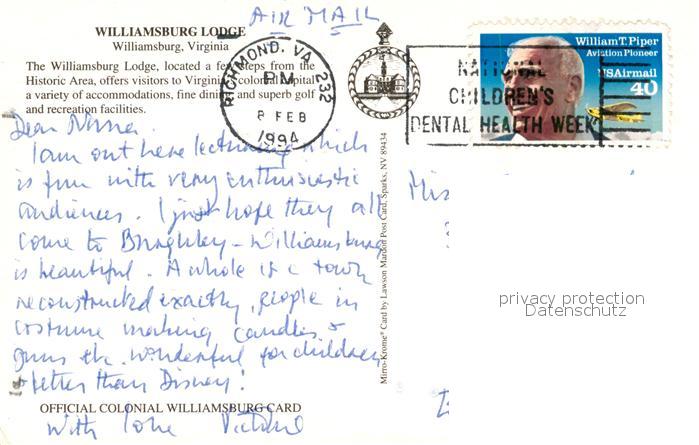 AIR MAIL
WILLIAMSBURG LODGE
Williamsburg, Virginia
The Williamsburg Lodge, located a few steps from the
Historic Area, offers visitors to Virginia's colonial capital
a variety of accommodations, fine dining and superb golf
and recreation facilities.
RICHMOND, VA 232
PM
8 FEB
1994
NATIONAL
CHILDREN'S
DENTAL HEALTH WEEK
William T. Piper
Aviation Pioneer
USAirmail
40
Dear
I am out here lecturing which
is fun with very enthusiastic
audiences. I just hope they all
come to Burghley - Williamsburg
is beautiful. A whole of a town
reconstructed exactly, people in
costume making candles &
guns etc. Wonderful for children
better than Disney!
With love Victoria
OFFICIAL COLONIAL WILLIAMSBURG CARD
Mirro-Krome® Card by Lawson Mardon Post Card, Sparks, NV 89434
privacy protection
Datenschutz